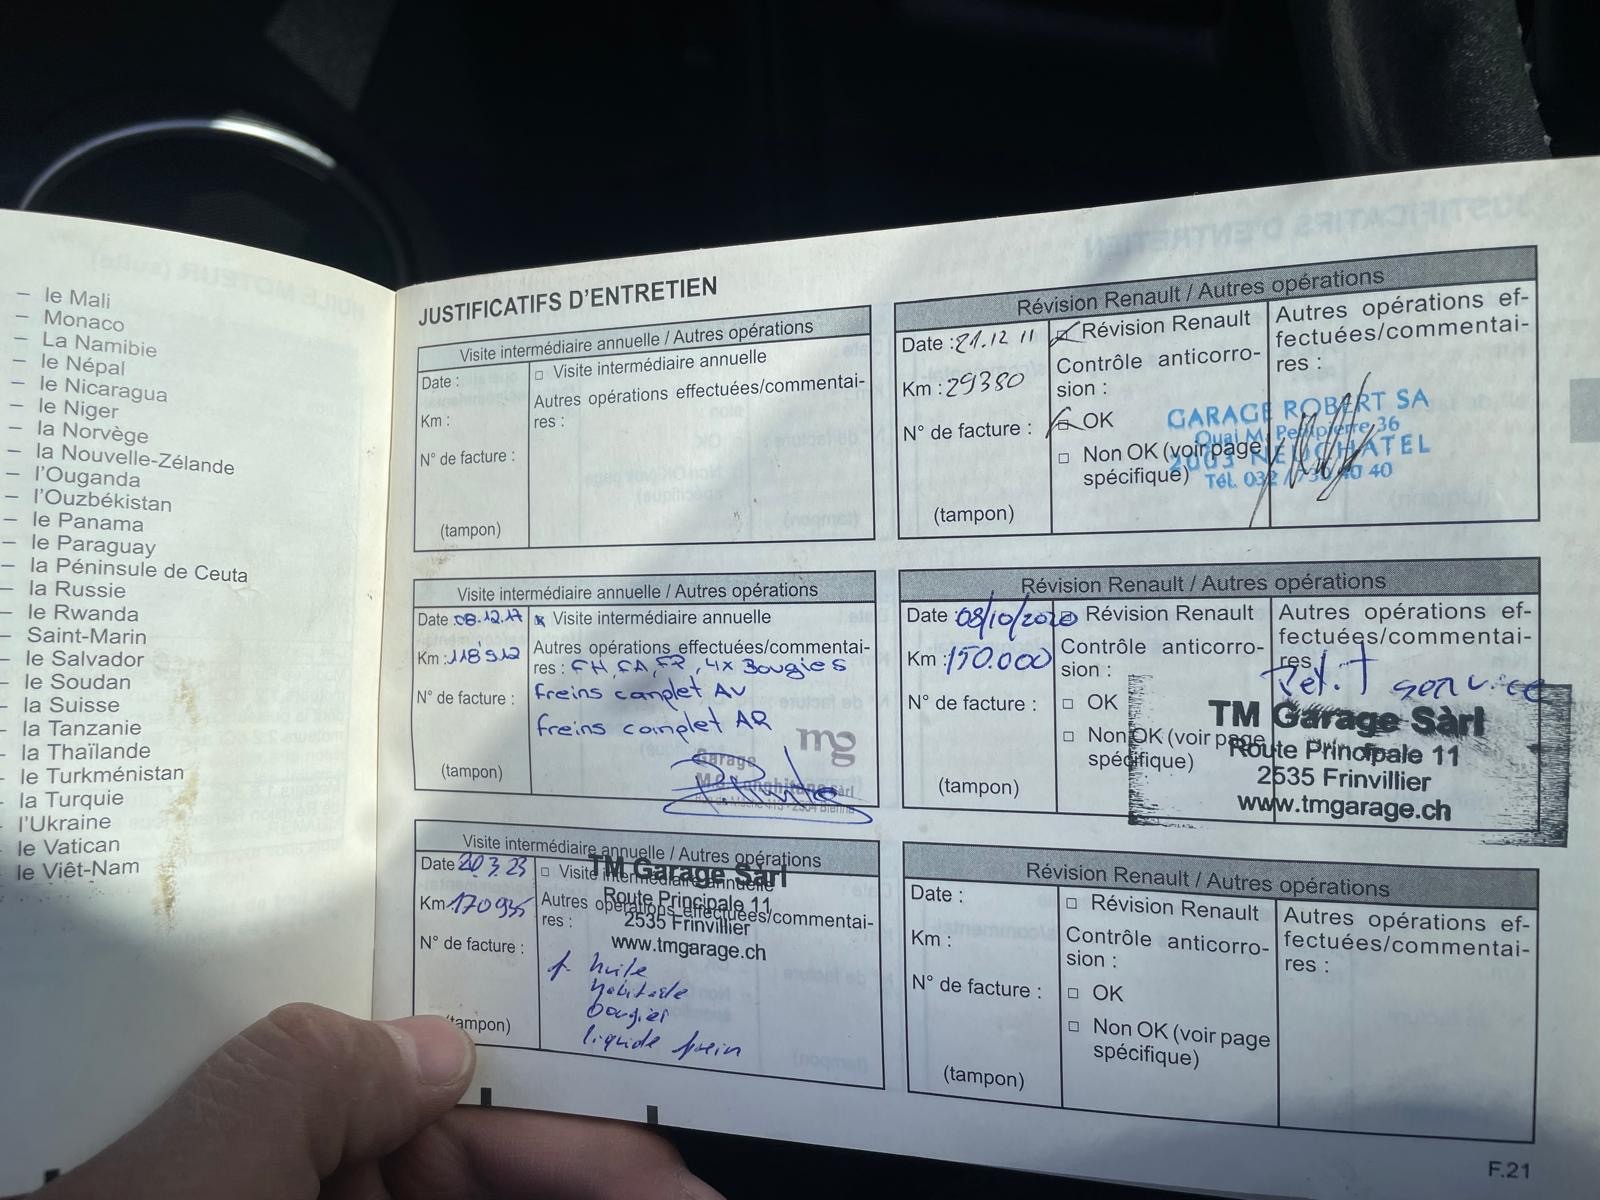 – le Mali
– Monaco
– La Namibie
– le Népal
– le Nicaragua
– le Niger
– la Norvège
– la Nouvelle-Zélande
– l'Ouganda
– l'Ouzbékistan
– le Panama
– le Paraguay
– la Péninsule de Ceuta
– la Russie
– le Rwanda
– Saint-Marin
– le Salvador
– le Soudan
– la Suisse
– la Tanzanie
– la Thaïlande
– le Turkménistan
– la Turquie
– l'Ukraine
– le Vatican
– le Viêt-Nam
JUSTIFICATIFS D'ENTRETIEN
Visite intermédiaire annuelle / Autres opérations
Date :
Km :
N° de facture :
(tampon)
□ Visite intermédiaire annuelle
Autres opérations effectuées/commentai-
res :
Révision Renault / Autres opérations
Date : 21.12 11
Km : 29380
N° de facture :
(tampon)
Révision Renault
Contrôle anticorro-
sion :
OK
□ Non OK (voir page
spécifique)
Autres opérations ef-
fectuées/commentai-
res :
GARAGE ROBERT SA
Quai M. Petitpierre 36
2003 NEUCHATEL
Tél. 032 / 730 40 40
Visite intermédiaire annuelle / Autres opérations
Date 08.12.17
Km : 118912
N° de facture :
(tampon)
Visite intermédiaire annuelle
Autres opérations effectuées/commentai-
res : FH, FA, FP, 4x Bougies
freins complet AV
freins complet AR
mg
Garage
Révision Renault / Autres opérations
Date : 08/10/2020
Km : 150.000
N° de facture :
(tampon)
□ Révision Renault
Contrôle anticorro-
sion :
□ OK
□ Non OK (voir page
spécifique)
Autres opérations ef-
fectuées/commentai-
res
Petit service
TM Garage Sàrl
Route Principale 11
2535 Frinvillier
www.tmgarage.ch
Visite intermédiaire annuelle / Autres opérations
Date 20.3.23
Km 170935
N° de facture :
(tampon)
□ Visite intermédiaire annuelle
Autres opérations effectuées/commentai-
res :
TM Garage Sàrl
Route Principale 11
2535 Frinvillier
www.tmgarage.ch
f. huile
habitacle
bougies
liquide frein
Révision Renault / Autres opérations
Date :
Km :
N° de facture :
(tampon)
□ Révision Renault
Contrôle anticorro-
sion :
□ OK
□ Non OK (voir page
spécifique)
Autres opérations ef-
fectuées/commentai-
res :
F.21